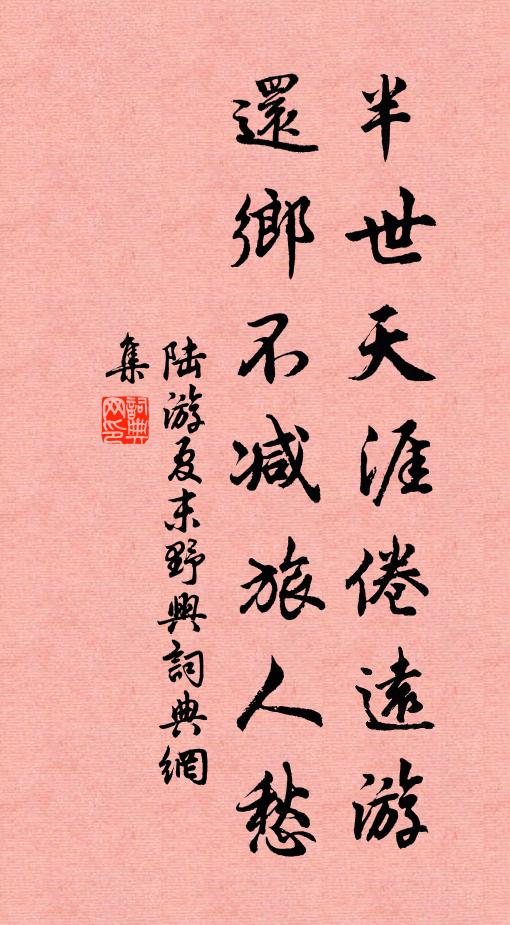 半世天涯倦遠游
還鄉不減旅人愁
陆游夏末野興詞典網
集
詞典
网印